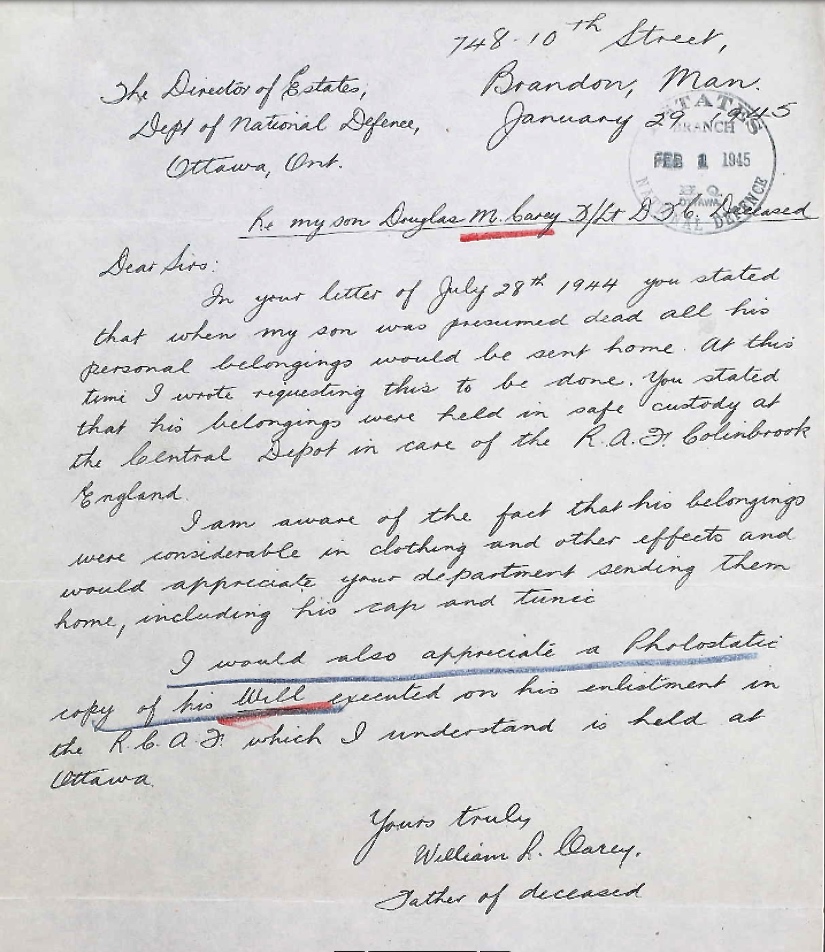 748-10th Street,
Brandon, Man.
January 29, 1945
The Director of Estates,
Dept of National Defence,
Ottawa, Ont.
ESTATES
BRANCH
FEB 1 1945
OTTAWA
NATIONAL DEFENCE
Re my son Douglas M. Carey F/Lt D.F.C. Deceased
Dear Sirs:
In your letter of July 28th 1944 you stated
that when my son was presumed dead all his
personal belongings would be sent home. At this
time I wrote requesting this to be done. You stated
that his belongings were held in safe custody at
the Central Depot in care of the R.A.F. Colinbrook
England.
I am aware of the fact that his belongings
were considerable in clothing and other effects and
would appreciate your department sending them
home, including his cap and tunic
I would also appreciate a Photostatic
copy of his Will executed on his enlistment in
the R.C.A.F. which I understand is held at
Ottawa.
Yours truly
William R. Carey.
Father of deceased